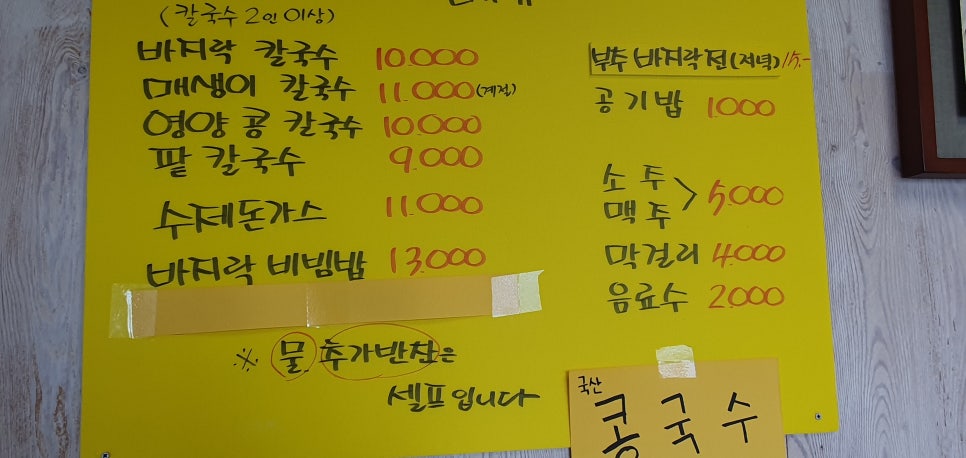 (칼국수 2인 이상)
바지락 칼국수 10.000
매생이 칼국수 11.000 (계절)
영양 콩 칼국수 10.000
팥 칼국수 9.000
수제돈가스 11.000
바지락 비빔밥 13.000
※ 물 추가반찬은
셀프입니다
부추 바지락전(저녁) 15.-
공기밥 1.000
소주
맥주 > 5.000
막걸리 4.000
음료수 2.000
국산
콩국수